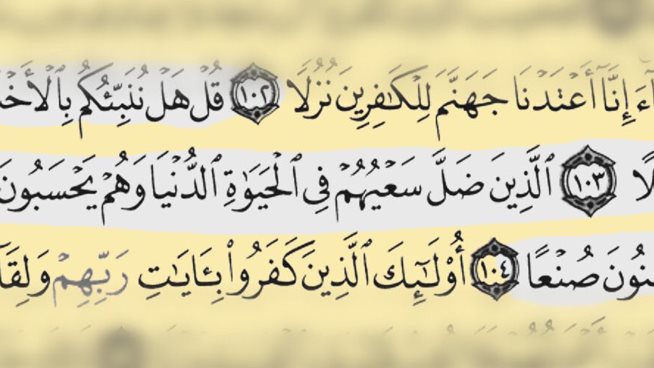 إِنَّآ أَعْتَدْنَا جَهَنَّمَ لِلْكَٰفِرِينَ نُزُلًا ١٠٢ قُلْ هَلْ نُنَبِّئُكُم بِٱلْأَخْ
لًا ١٠٣ ٱلَّذِينَ ضَلَّ سَعْيُهُمْ فِى ٱلْحَيَوٰةِ ٱلدُّنْيَا وَهُمْ يَحْسَبُونَ
نُونَ صُنْعًا ١٠٤ أُو۟لَٰٓئِكَ ٱلَّذِينَ كَفَرُوا۟ بِـَٔايَٰتِ رَبِّهِمْ وَلِقَآ